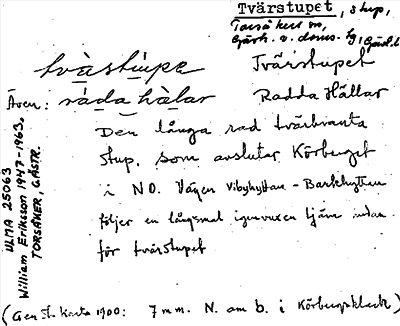 Tvärstupet, stup,
Torsåkers sn,
Gästr. v. doms. tg, Gävl. l.
tvästupe Tvärstupet
Även: råda hälar Radda Hällar
Den långa rad tvärbranta
stup, som avslutar Körberget
i NO. Vägen Vibyhyttan - Barkhyttan
följer en långsmal igenvuxen tjärn nedan
för tvärstupet
(Gen. St. karta 1900: 7 mm. N. om b. i Körbergsklack)
ULMA 25063
William Eriksson 1947-1963.
TORSÅKER, GÄSTR.